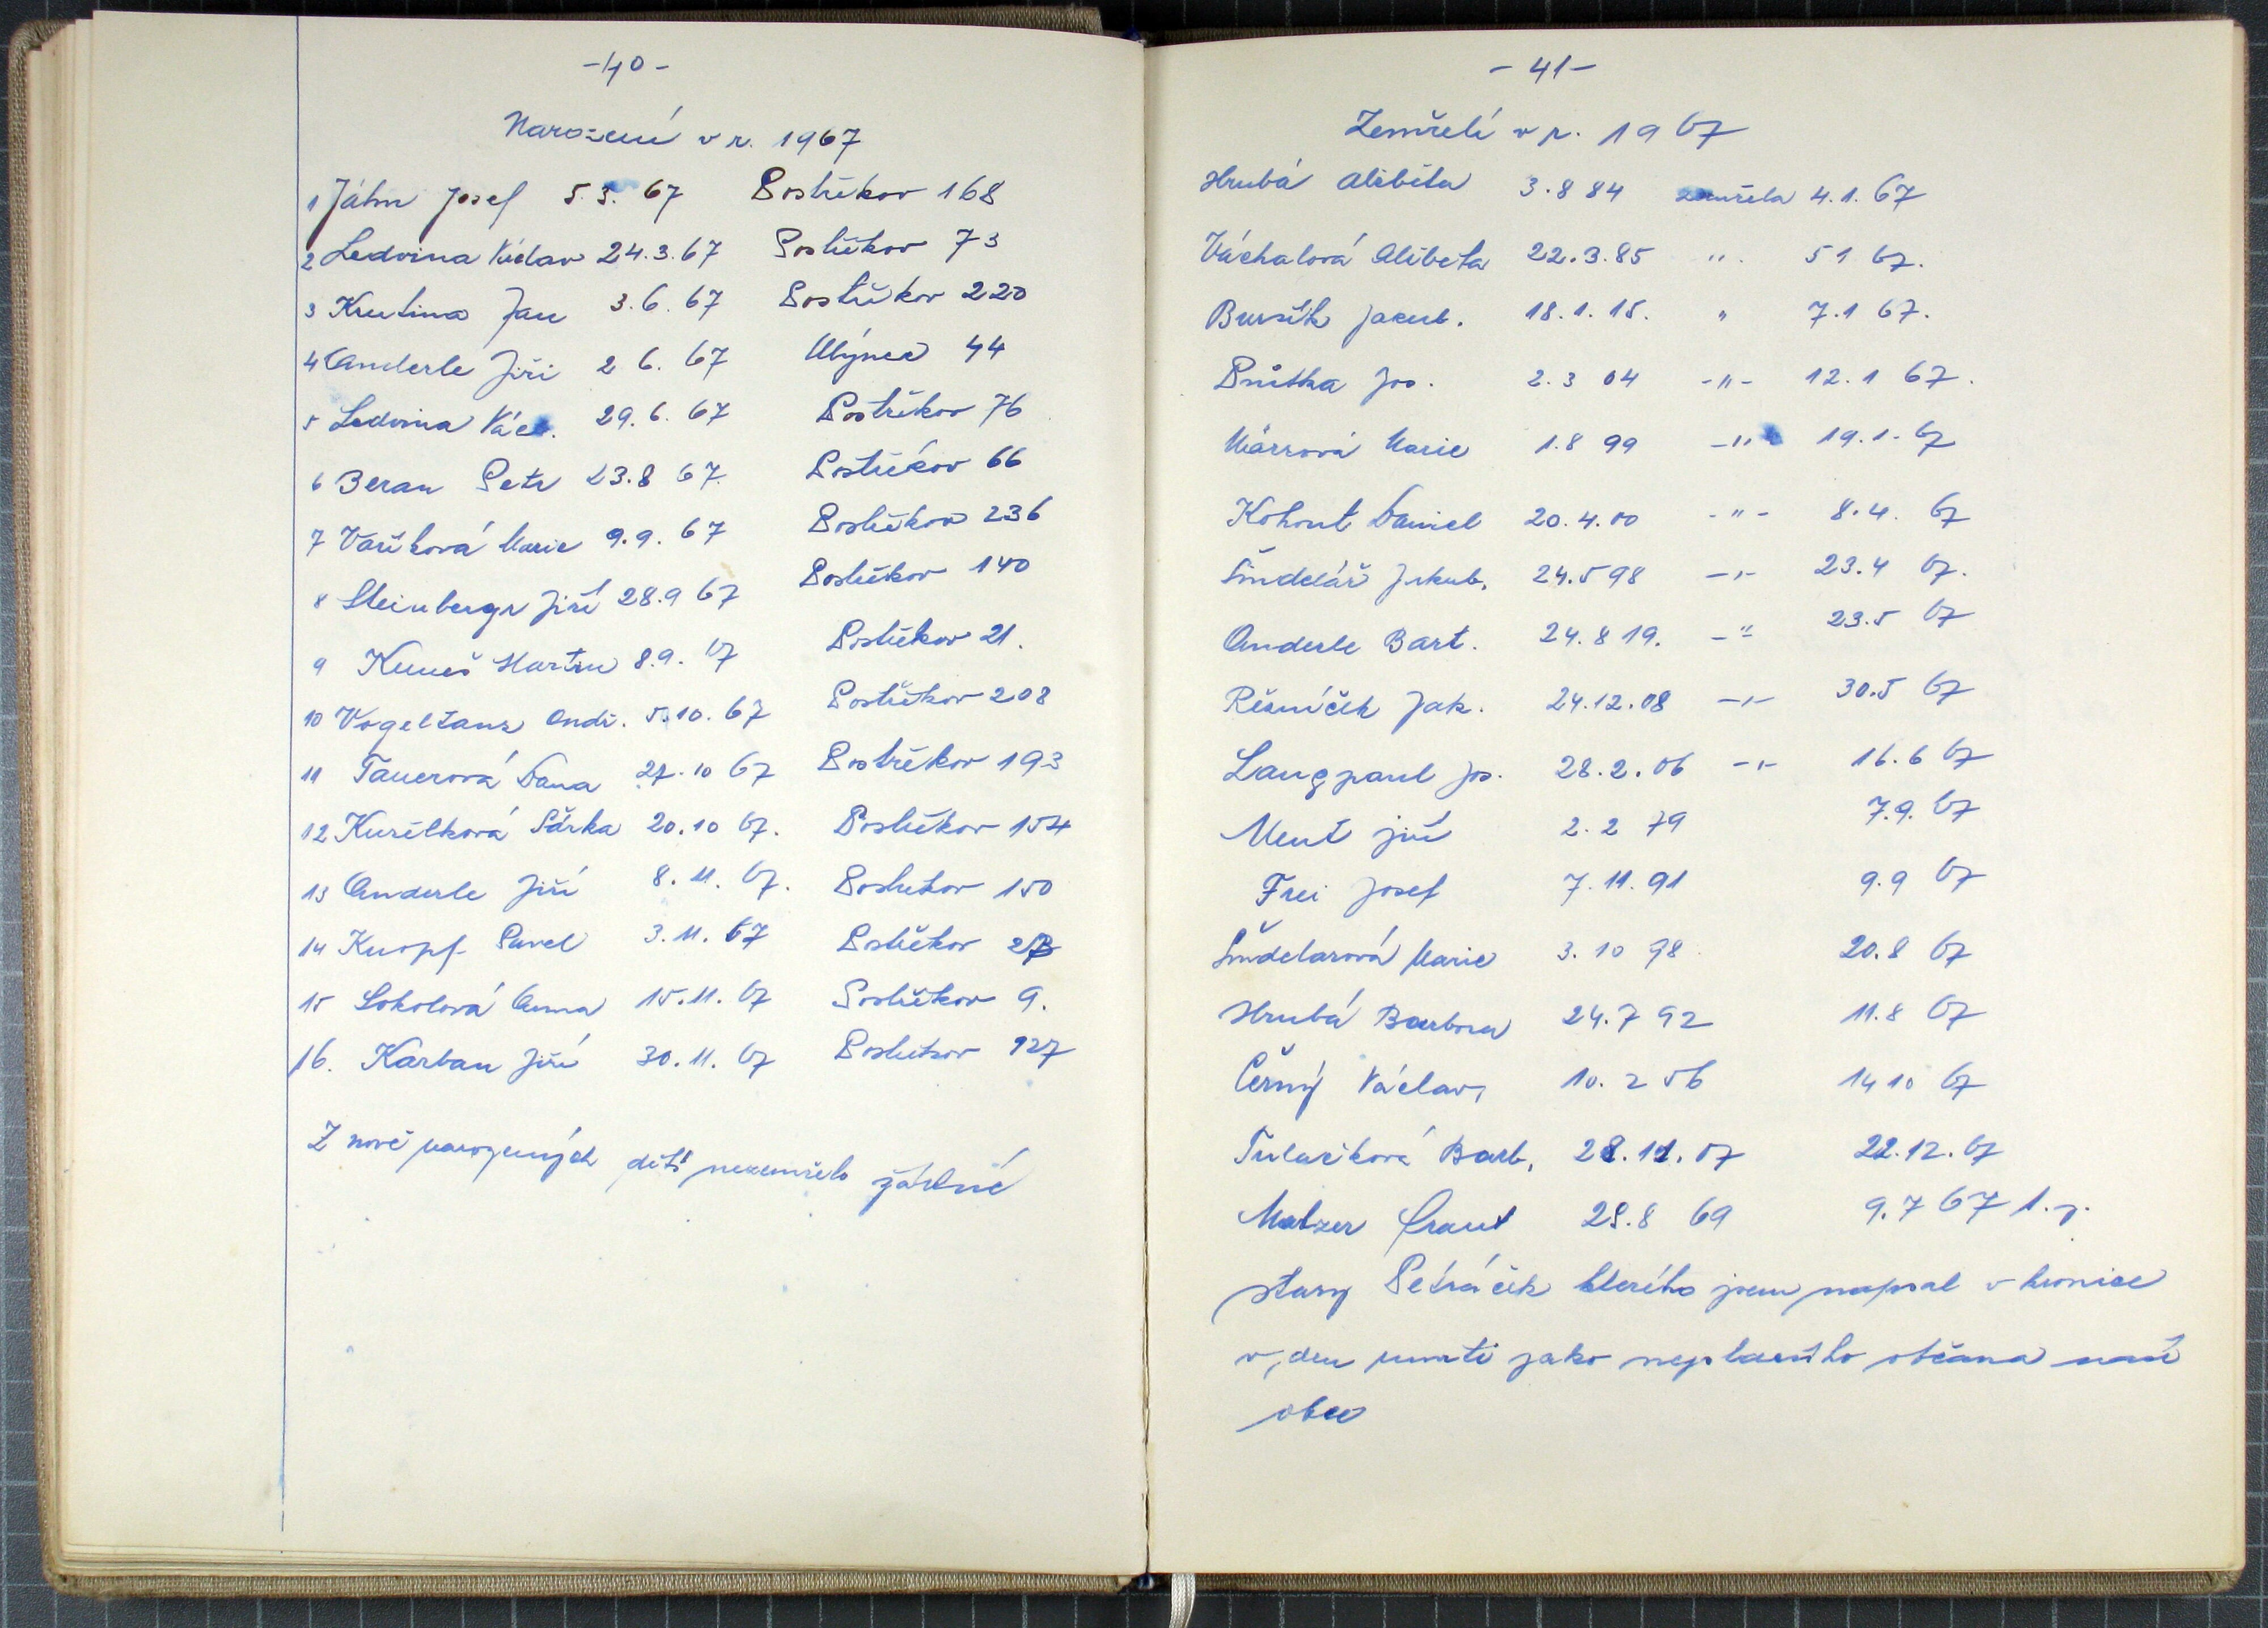 -40-
Narození v r. 1967
1 Jáhn Josef 5.3.67 Postřekov 168
2 Ledvina Václav 24.3.67 Postřekov 73
3 Krutina Jan 3.6.67 Postřekov 220
4 Anderle Jiři 2 6. 67 Mlýnec 44
5 Ledvina Václ. 29.6.67 Postřekov 76
6 Beran Petr 23.8 67. Postřekov 66
7 Vaříková Marie 9.9.67 Postřekov 236
8 Steinbergr Jiří 28.9 67 Postřekov 140
9 Kuneš Martin 8.9.67 Postřekov 21.
10 Vogeltanz Ondř. 5.10.67 Postřekov 208
11 Tauerová Dana 27.10 67 Postřekov 193
12 Kurélková Šárka 20.10 67. Postřekov 154
13 Anderle Jiří 8.11.67. Postřekov 150
14 Knopf Pavel 3.11.67 Postřekov
15 Sokolová Anna 15.11.67 Postřekov 9.
16. Karban Jiří 30.11.67 Postřekov 127
Z nově narozených dětí nezemřelo žádné
-41-
Zemřelí v r. 1967
Hrubá Alžběta 3.8 84 zemřela 4.1.67
Váchalová Alžběta 22.3.85 " 5 1 67.
Buršík Jakub. 18.1.15. " 7.1 67.
Průtka Jos. 2.3 04 -"- 12.1 67.
Márrová Marie 1.8 99 -"- 19.1.67
Kohout Daniel 20.4.00 -"- 8.4.67
Šindelář Jakub. 24.5 98 -"- 23.4 67.
Anderle Bart. 24.8 19. -" 23.5 67
Řezníček Jak. 24.12.08 -"- 30.5 67
Langpaul Jos. 28.2.06 -"- 16.6 67
Ment Jiří 2.2 79 7.9.67
Frei Josef 7.11.91 9.9 67
Šindelarová Marie 3.10 98 20.8 67
Hrubá Barbora 24.7 92 11.8 67
Černý Václav, 10.2 56 14 10 67
Tulačková Barb. 28.11.07 22.12.67
Matzer Frant 28.8 69 9.7 67 t.j.
starý Petráček kterého jsem napsal v kronice
v den úmrtí jako nejstaršího občana naší
obce